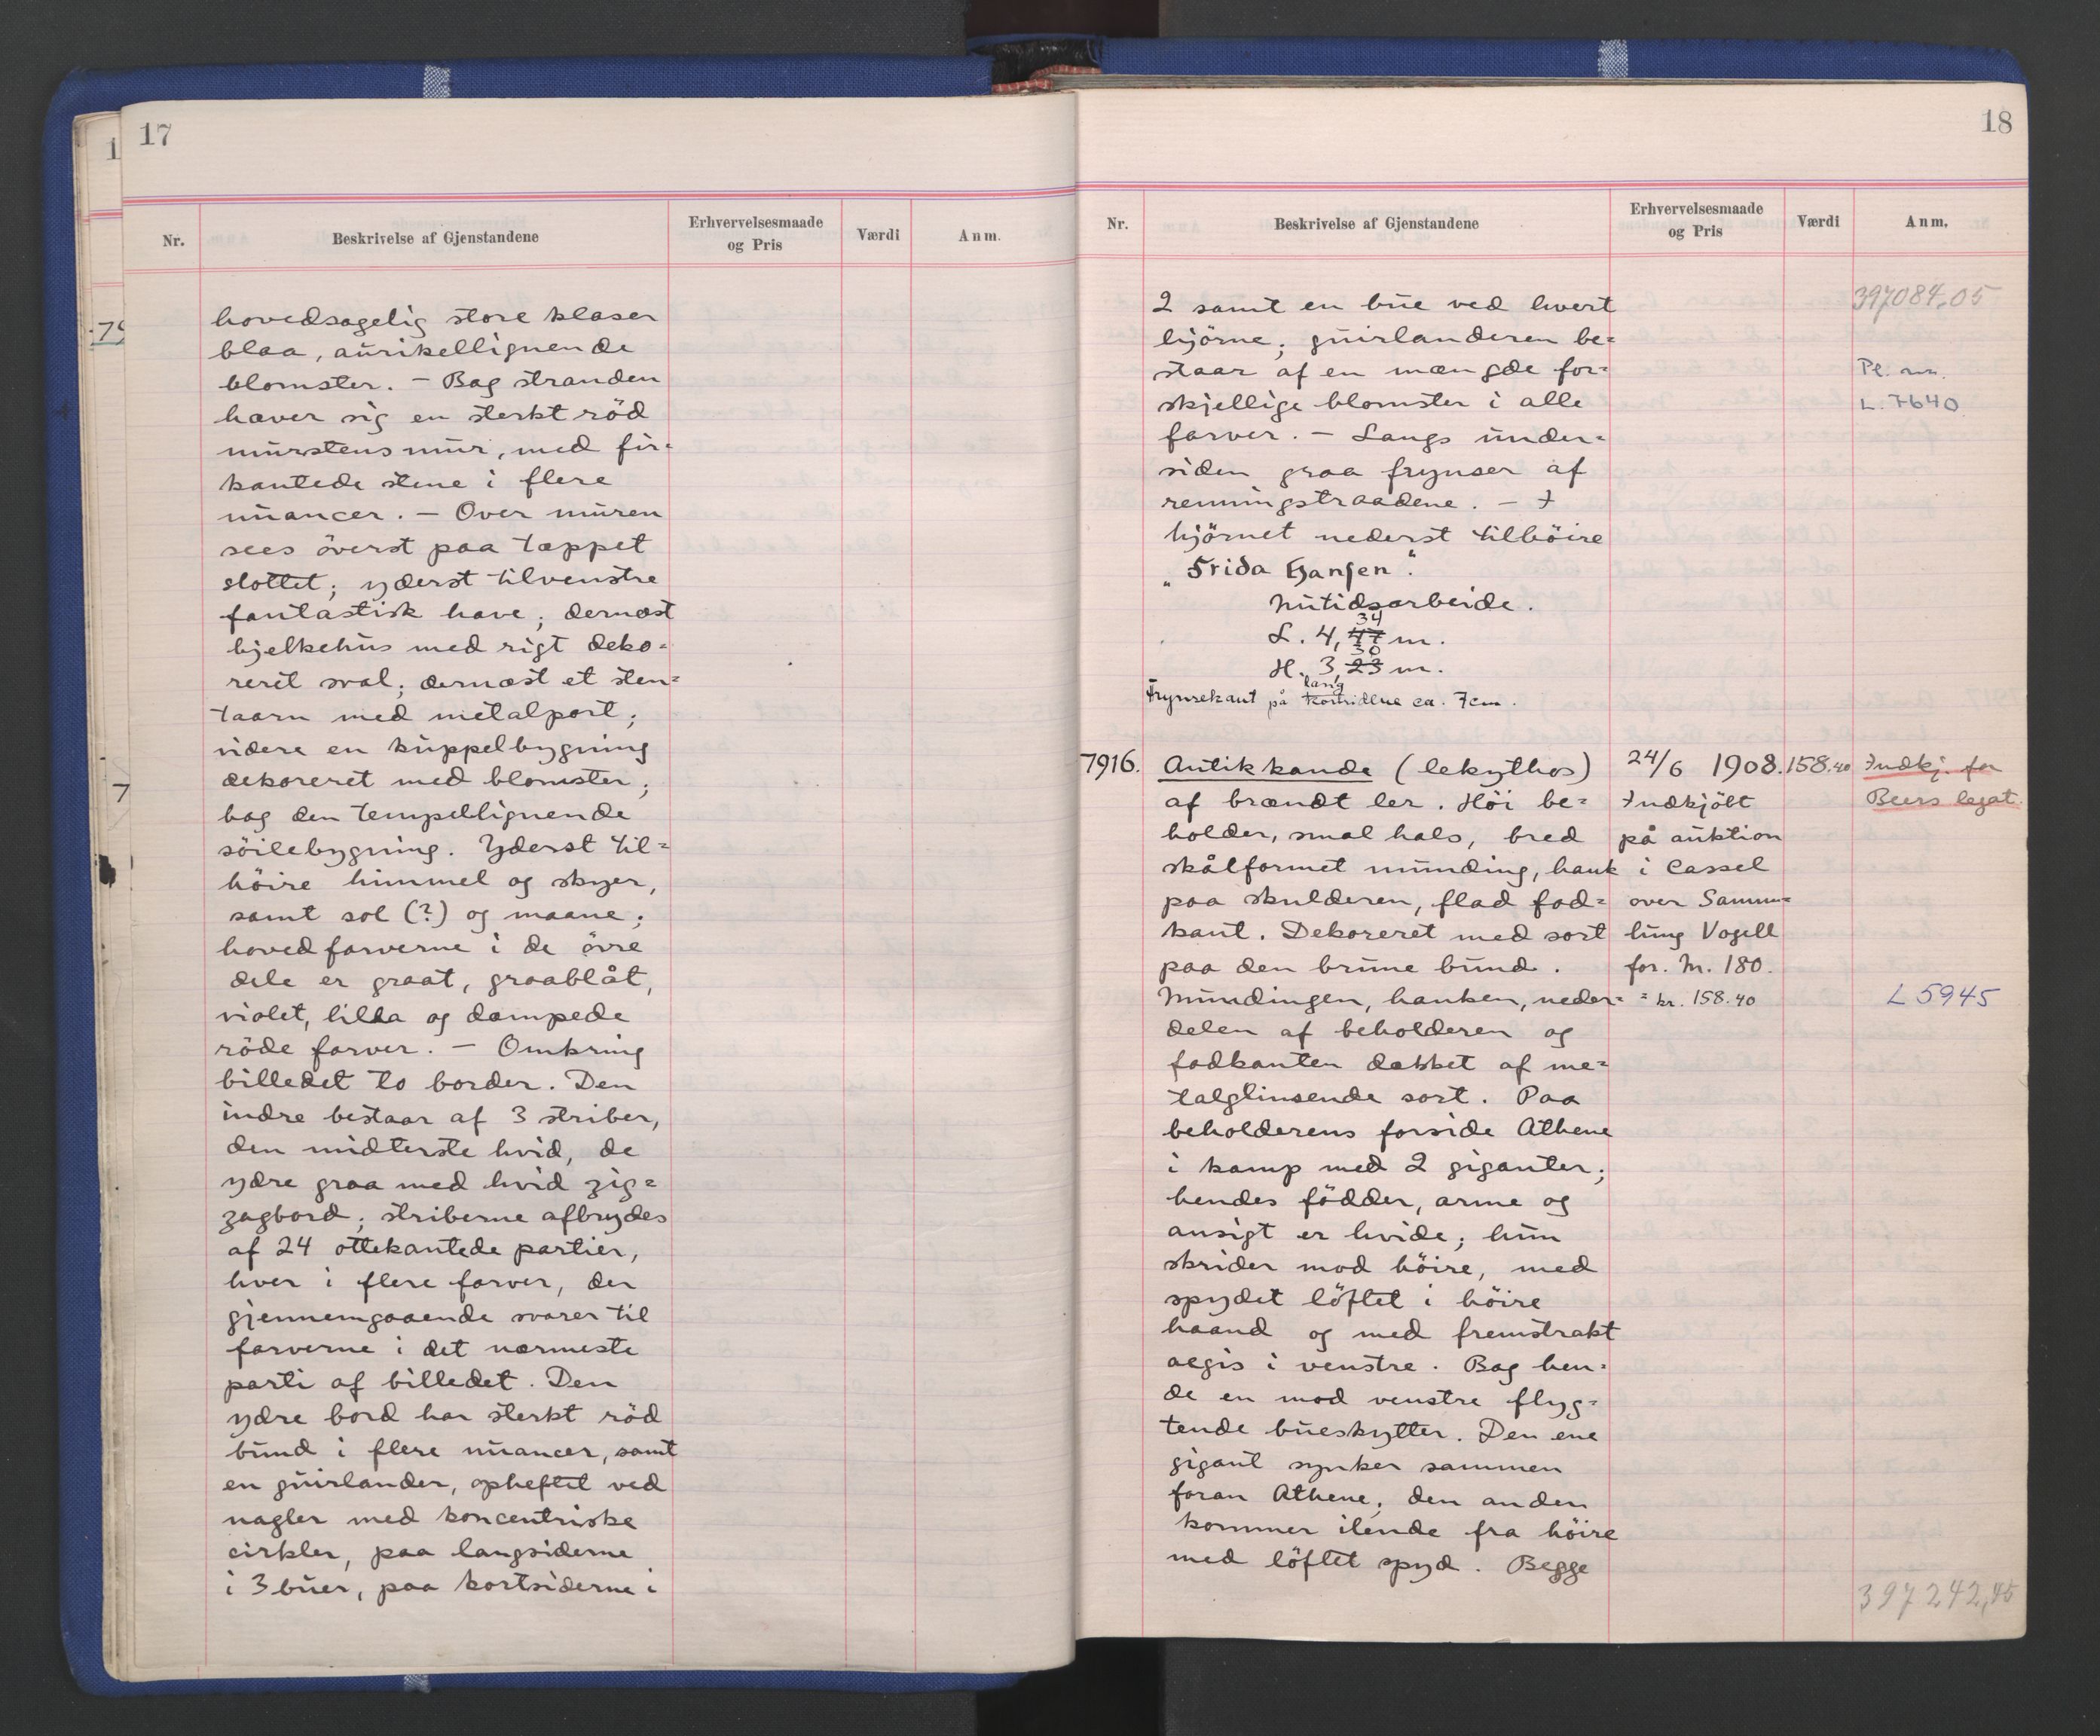 17
Nr.
Beskrivelse af Gjenstandene
Erhvervelsesmaade
og Pris
Værdi
Anm.
hovedsagelig store klaser
blaa, aurikellignende
blomster. — Bag stranden
hæver sig en sterkt röd
murstensmur, med fir=
kantede stene i flere
nuancer. — Over muren
sees överst paa tæppet
slottet; yderst tilvenstre
fantastisk have; dernæst
bjelkehus med rigt deko=
reret sval; dernæst et sten=
taarn med metalport;
videre en kuppelbygning
dekoreret med blomster;
bag den tempellignende
söilebygning. Yderst til=
höire himmel og skyer,
samt sol (?) og maane;
hovedfarverne i de övre
dele er graat, graablåt,
violet, lilla og dæmpede
röde farver. — Omkring
billedet to border. Den
indre bestaar af 3 striber,
den midterste hvid, de
ydre graa med hvid zig=
zagbord; striberne afbrydes
af 24 ottekantede partier,
hver i flere farver, der
gjennemgaaende svarer til
farverne i det nærmeste
parti af billedet. Den
ydre bord har sterkt röd
bund i flere nuancer, samt
en guirlander, opheftet ved
nagler med koncentriske
cirkler, paa langsiderne
i 3 buer, paa kortsiderne i
18
Nr.
Beskrivelse af Gjenstandene
Erhvervelsesmaade
og Pris
Værdi
Anm.
397084,05
2 samt en bue ved hvert
hjörne; guirlanderen be=
staar af en mængde for=
skjellige blomster i alle
farver. — Langs under=
siden graa frynser af
renningstraadene. — I
hjörnet nederst tilhöire
„Frida Hansen".
Nutidsarbeide.
34
L. 4,47 m.
30
H. 3,23 m.
lang
Frynsekant på kortsidene ca. 7cm.
L. 7640
7916.
Antik kande (lekythos)
af brændt ler. Höi be=
holder, smal hals, bred
skålformet munding, hank
paa skulderen, flad fod=
kant. Dekoreret med sort
paa den brune bund.
Mundingen, hanken, neder=
delen af beholderen og
fodkanten dækket af me=
talglinsende sort. Paa
beholderens forside Athene
i kamp med 2 giganter;
hendes födder, arme og
ansigt er hvide; hun
skrider mod höire, med
spydet löftet i höire
haand og med fremstrakt
aegis i venstre. Bag hen=
de en mod venstre flyg=
tende bueskytter. Den ene
gigant synker sammen
foran Athene, den anden
kommer ilende fra höire
med löftet spyd. Begge
24/6 1908.
Indkjöbt
på auktion
i Cassel
over Samm=
lung Vogell
for. M. 180.
= kr. 158.40
158.40
Indkj. for
Beers legat.
L 5945
397242,45